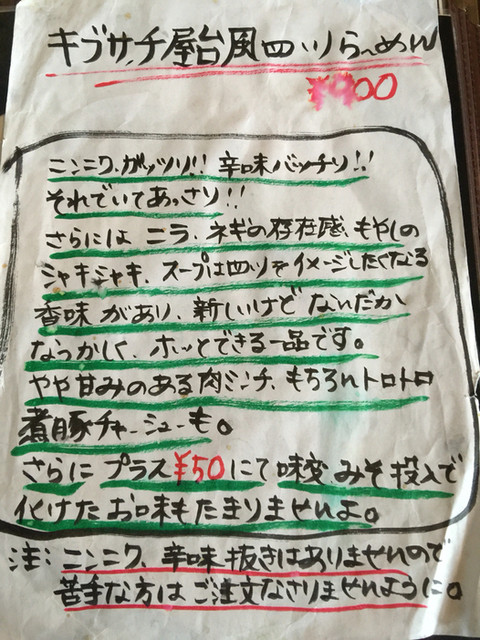 キブサチ屋台風四川らーめん
¥900
ニンニクガッツリ!! 辛味バッチリ!!
それでいてあっさり!!
さらには ニラ、ネギの存在感、もやしの
シャキシャキ、スープは四川をイメージしたくなる
香味があり、新しいけど なんだか
なつかしく、ホッとできる一品です。
やや甘みのある肉ミンチ、もちろんトロトロ
煮豚チャーシューも。
さらに プラス¥50にて味変、みそ投入で
化けたお味もたまりませんよ。
注:ニンニク、辛味抜きはありませんので
苦手な方はご注文なさりませんように。